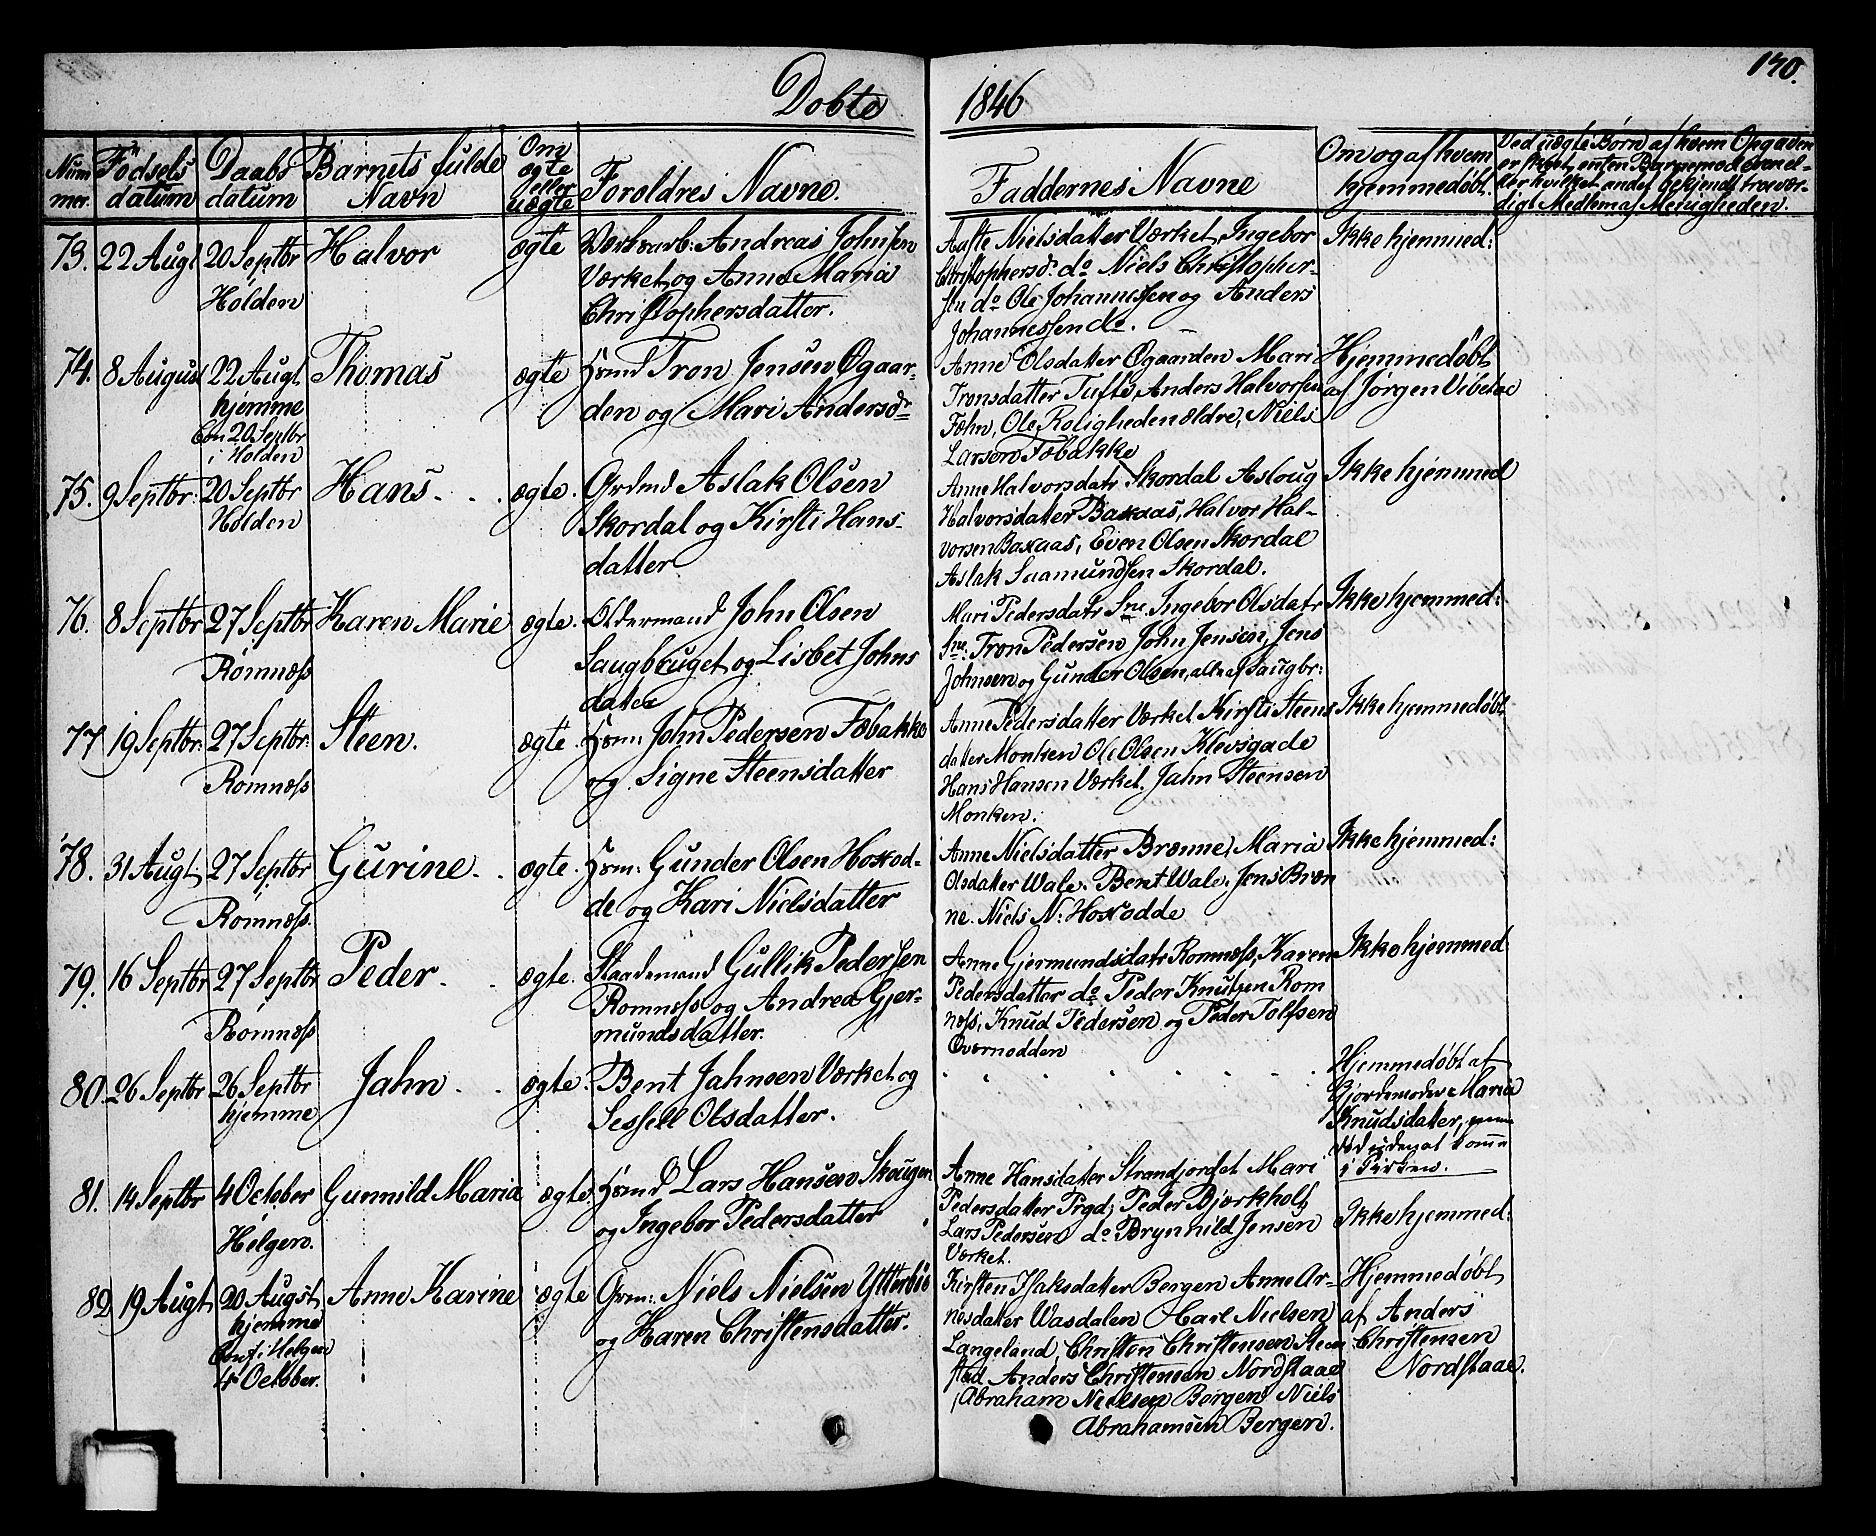 Døbte 1846
170.
Num
mer.
Fødsels
datum
Daabs
datum
Barnets fulde
Navn
Om
ægte
eller
uægte
Foroldres Navne.
Faddernes Navne
Om og af hvem
hjemmedøbt.
Ved uægte Børn af hvem Opgaven
er skeet, enten Barnemoderen el-
ler hvilket andet bekjendt troevær-
digt Medlem af Menigheden.
73. 22 Augt
20 Septbr
Holden
Halvor
ægte
Værksarb: Andreas Johnsen
Værket og Anne Maria
Christophersdatter.
Aaste Nielsdatter Værket, Ingebor
Christophersd. do Niels Christopher-
sen do Ole Johannessen og Anders
Johannessen do.
Ikke hjemmed:
74. 8 August
22 Augt
hjemme
Con 20 Septbr
i Holden
Thomas
ægte
Huusmd Tron Jensen Øgaar-
den og Mari Andersdr
Anne Olsdatter Øgaarden Mari
Tronsdatter Tufte, Anders Halvorsen
Fæhn, Ole Roligheden ældre, Niels
Larsen Fæbakke
Hjemmedøbt
af Jørgen Vibetoe
75. 9 Septbr:
20 Septbr
Holden
Hans
ægte.
Grdmd Aslak Olsen
Skordal og Kirsti Hans-
datter
Anne Halvorsdatr Skordal Asloug
Halvorsdatter Baxaas, Halvor Hal-
vorsen Baxaas, Even Olsen Skordal
Aslak Saamundsen Skordal.
Ikke hjemmed
76. 8 Septbr
27 Septbr
Romnæss
Karen Marie
ægte.
Oldermand John Olsen
Saugbruget og Lisbet Johns
datter
Mari Pedersdatr Sne. Ingebor Olsdatr
Sne: Tron Pedersen John Jensen, Jens
Johnsen og Gunder Olsen, alle af Saugbr:
Ikke hjemmed:
77 19 Septbr:
27 Septbr:
Romnæss
Steen.
ægte.
Huusm: John Pedersen Fæbakke
og Signe Steensdatter
Anne Pedersdatter Værket Kirsti Steens
datter Monken Ole Olsen Klevsgade
Hans Hansen Værket. Jahn Steensen
Monken.
Ikke hjemmedøbt
78. 31 Augt
27 Septbr
Romnæss.
Gurine
ægte.
Huusm: Gunder Olsen Hoxod-
de og Kari Nielsdatter
Anne Nielsdatter Brænne, Maria
Olsdatter Wale. Bent Wale. Jens Bræn
ne. Niels N: Hoxodde
Ikke hjemmed:
79. 16 Septbr
27 Septbr
Romnæss
Peder
ægte.
Gaardmand Gullik Pedersen
Romnæss og Andrea Gjer-
mundsdatter.
Anne Gjermundsdatr Romnæss, Karen
Pedersdatter do Peder Knutsen Rom
næss, Knud Pedersen og Peder Tolfsen
Overnodden
Ikke hjemmed
80. 26 Septbr
26 Septbr
hjemme
Jahn
ægte.
Bent Jahnsen Værket og
Sessell Olsdatter.
Hjemmedøbt af
Gjordemoder Maria
Knudsdatter, men
død uden at komme
i Kirken.
81. 14 Septbr
4 October
Helgen.
Gunnild Maria
ægte
Huusmd Lars Hansen Skougen
og Ingebor Pedersdatter
Anne Hansdatter Strandjordet Mari
Pedersdatter Prgd, Peder Bjørkholt
Lars Pedersen do Brynnild Jensen
Værket.
Ikke hjemmed:
82 19 Augt
20 Augst
hjemme
Conf i Helgen
4 October.
Anne Karine
ægte
Grm: Niels Nielsen Ytterbøe
og Karen Christensdatter.
Kirsten Isaksdatter Bergen Anne Ar-
nesdatter Wasdalen Karl Nielsen
Langeland, Christen Christensen Steen
stad Anders Christensen Nordstaae
Abraham Nielsen Bergen Niels
Abrahamsen Bergen.
Hjemmedøbt
af Anders
Christensen
Nordstaae.